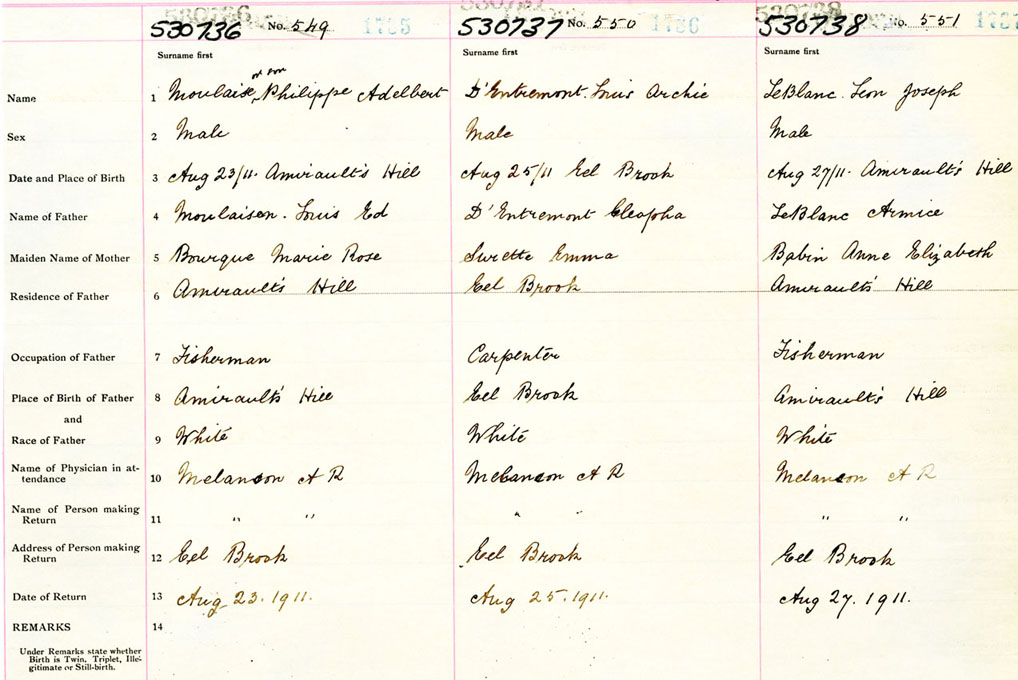 530736 No. 549 1735 530737 No. 550 1736 530738 No. 551 1737
Surname first Surname first Surname first
Name 1 Moulaison, Philippe Adelbert D'Entremont. Louis Archie LeBlanc. Leon Joseph
Sex 2 Male Male Male
Date and Place of Birth 3 Aug 23/11. Amirault's Hill Aug 25/11 Eel Brook Aug 27/11. Amirault's Hill
Name of Father 4 Moulaison. Louis Ed D'Entremont Cleopha LeBlanc Armice
Maiden Name of Mother 5 Bourque Marie Rose Surette Emma Babin Anne Elizabeth
Residence of Father 6 Amirault's Hill Eel Brook Amirault's Hill
Occupation of Father 7 Fisherman Carpenter Fisherman
Place of Birth of Father 8 Amirault's Hill Eel Brook Amirault's Hill
and
Race of Father 9 White White White
Name of Physician in at-
tendance 10 Melanson A R Melanson A R Melanson A R
Name of Person making
Return 11 " " " " " "
Address of Person making
Return 12 Eel Brook Eel Brook Eel Brook
Date of Return 13 Aug 23. 1911. Aug 25. 1911. Aug 27. 1911.
REMARKS 14
Under Remarks state whether
Birth is Twin, Triplet, Ille-
gitimate or Still-birth.